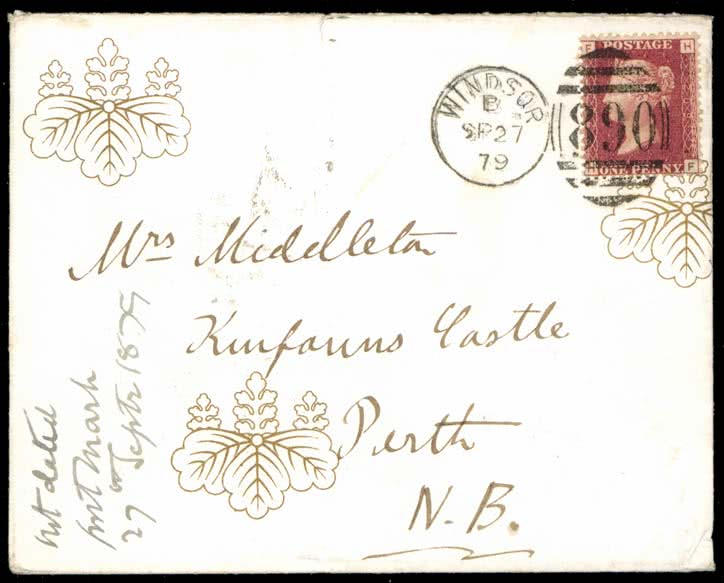 WINDSOR
B
SP 27
79
890
F H
POSTAGE
ONE PENNY
H F
Mrs Middleton
Kinfauns Castle
Perth
N.B.
not dated
post mark
27 Septr 1879